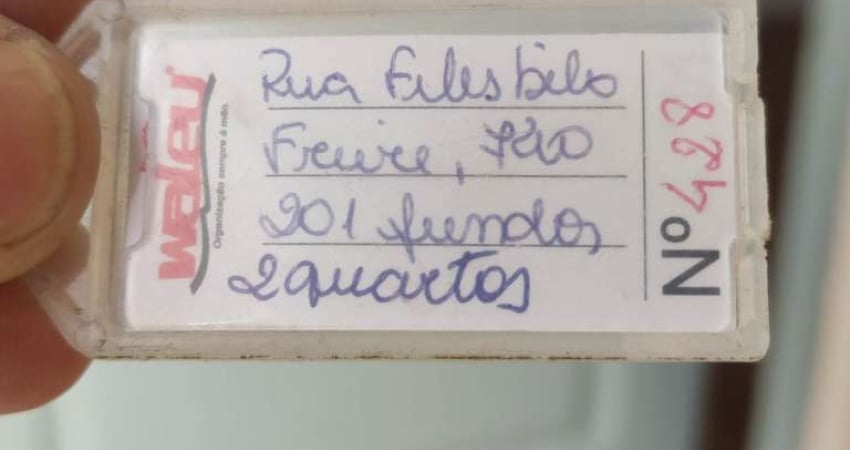 waleu
Organização sempre à mão.
Rua Felisbelo
Freire,
201 fundos
2 quartos
Nº 428